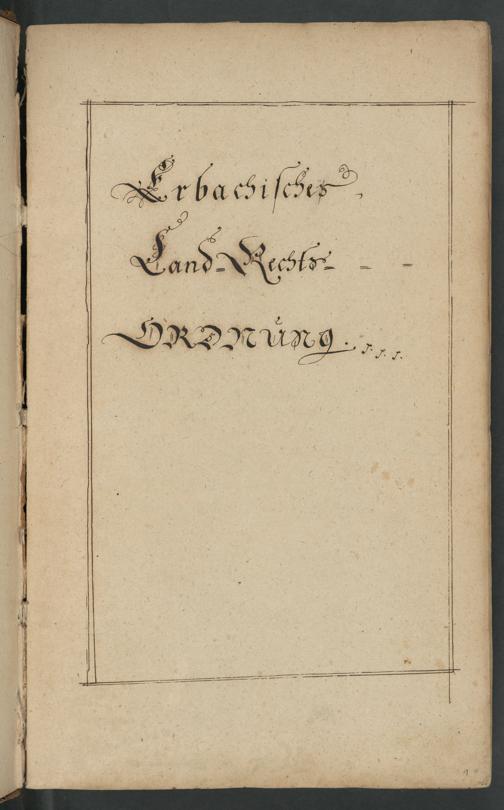 Erbachisches
Land-Rechts-
ORDNŬNG.